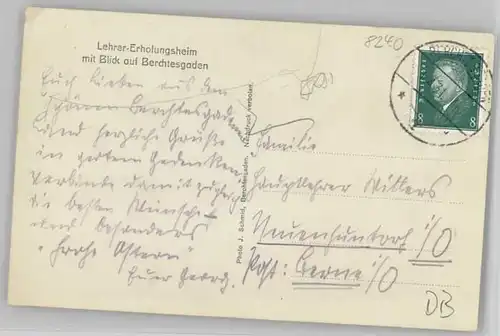 Lehrer-Erholungsheim
mit Blick auf Berchtesgaden
8240
Euch Lieben aus dem
schönen Berchtesgadener
Land herzliche Grüße
in gutem Gedenken
verbinde damit zugleich
die besten Wünsche
und besonders
"frohe Ostern"
Euer Georg.
Photo J. Schmid, Berchtesgaden. Nachdruck verboten.
Familie
Hauptlehrer Willers
Neuenhuntorf i/O
Post: Berne i/O
DB
8 8